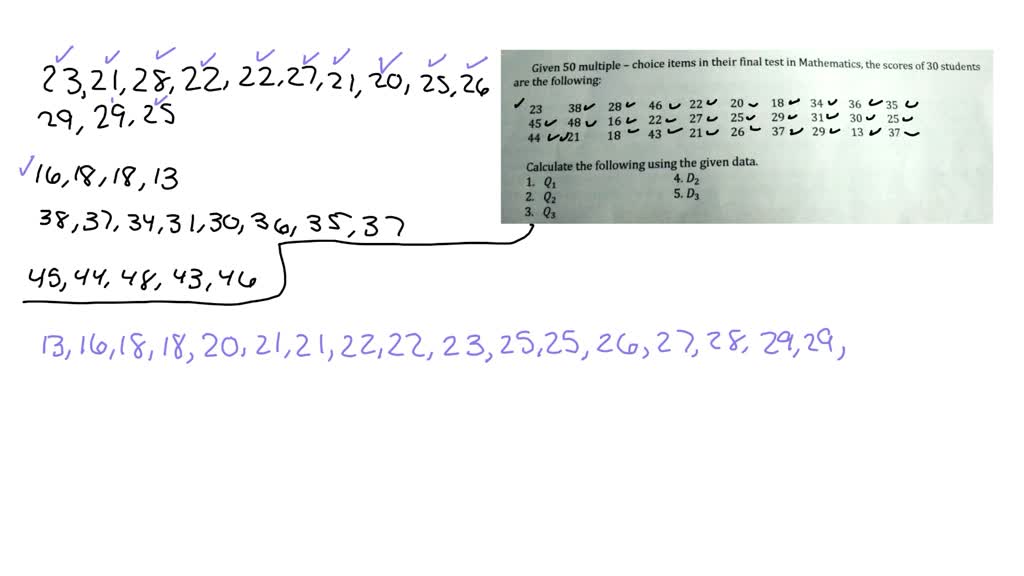 23, 21, 28, 22, 22, 27, 21, 20, 25, 26
29, 29, 25
16, 18, 18, 13
38, 37, 34, 31, 30, 36, 35, 37
45, 44, 48, 43, 46
13, 16, 18, 18, 20, 21, 21, 22, 22, 23, 25, 25, 26, 27, 28, 29, 29,
Given 50 multiple – choice items in their final test in Mathematics, the scores of 30 students
are the following:
23 38 28 46 22 20 18 34 36 35
45 48 16 22 27 25 29 31 30 25
44 21 18 43 21 26 37 29 13 37
Calculate the following using the given data.
1. Q1 4. D2
2. Q2 5. D3
3. Q3